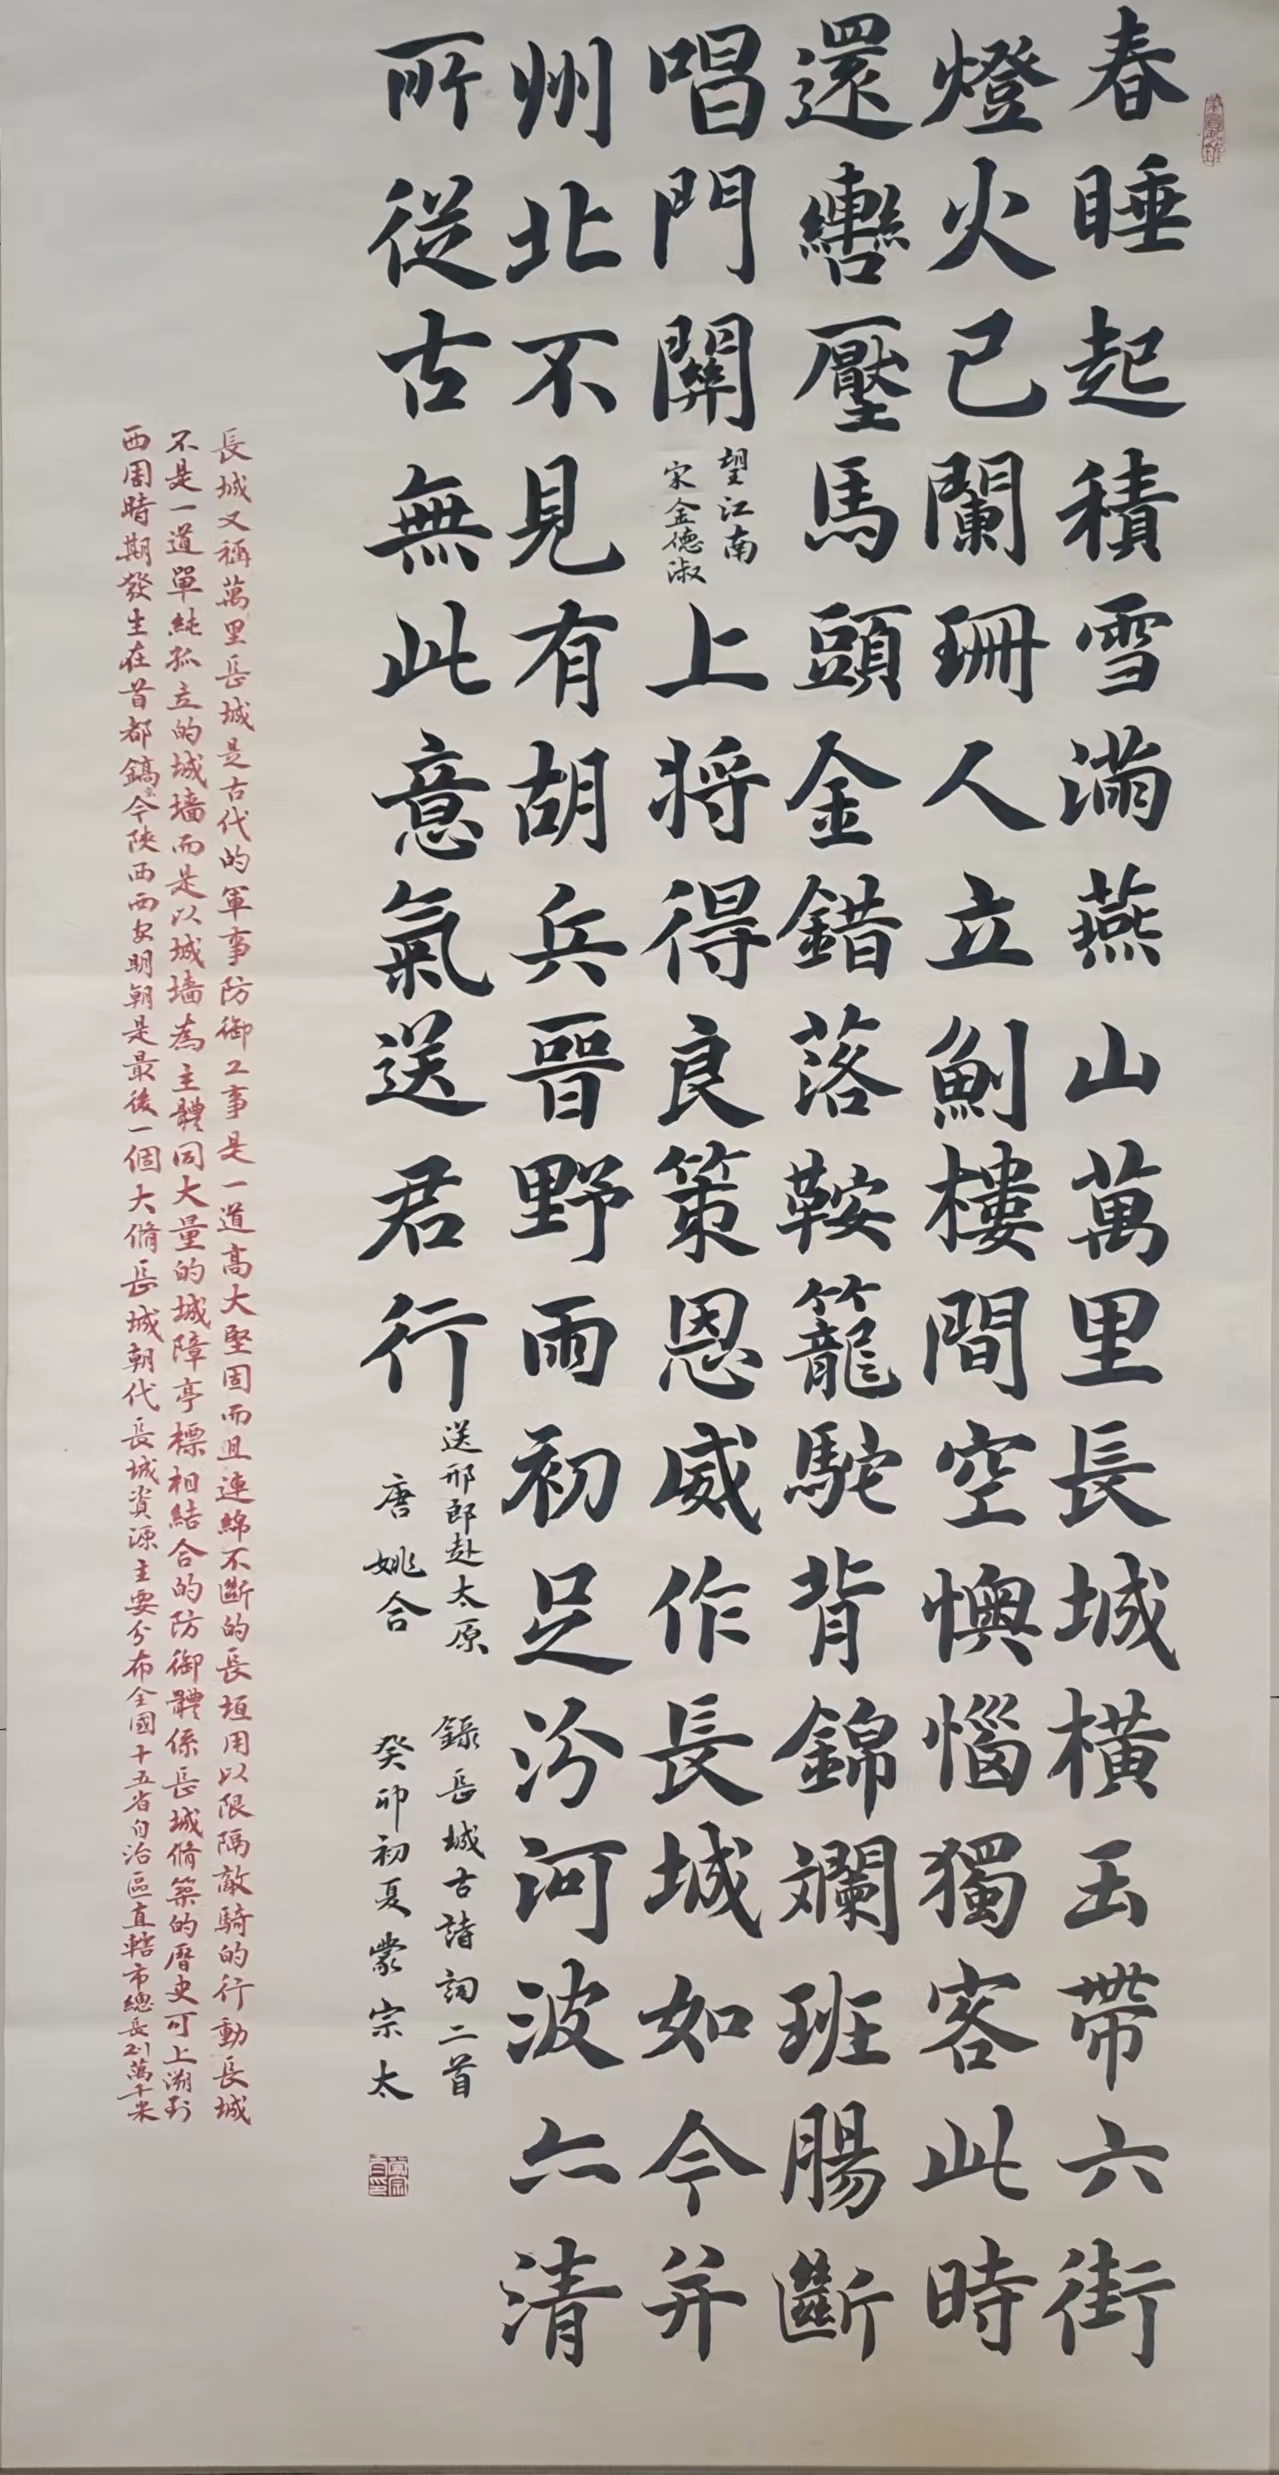 春睡起積雪滿燕山萬里長城橫玉帶六街
燈火已闌珊人立劍樓間空懊惱獨客此時
還轡壓馬頭金錯落鞍籠駝背錦斕班腸斷
唱門關
望江南
宋金德淑
上將得良策恩威作長城如今并
州北不見有胡兵晉野雨初足汾河波亦清
所從古無此意氣送君行
送邢郎赴太原
唐姚合
錄長城古詩詞二首
癸卯初夏蒙宗太
長城又稱萬里長城是古代的軍事防御工事是一道高大堅固而且連綿不斷的長垣用以限隔敵騎的行動長城
不是一道單純孤立的城墻而是以城墻為主體同大量的城障亭標相結合的防御體係長城脩築的曆史可上溯到
西周時期發生在首都鎬京今陝西西安明朝是最後一個大脩長城朝代長城資源主要分布全國十五省自治區直轄市總長2.1萬千米